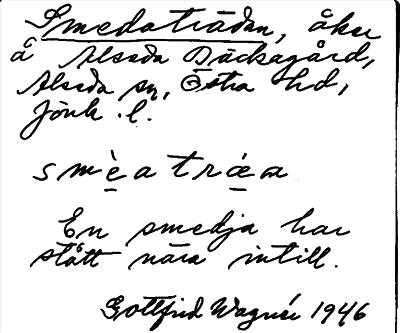 Smedaträdan, åker
å Alseda Bäcksgård,
Alseda sn, Östra hd,
Jönk. l.
smèatræa
En smedja har
stått nära intill.
Gottfrid Wagnér 1946